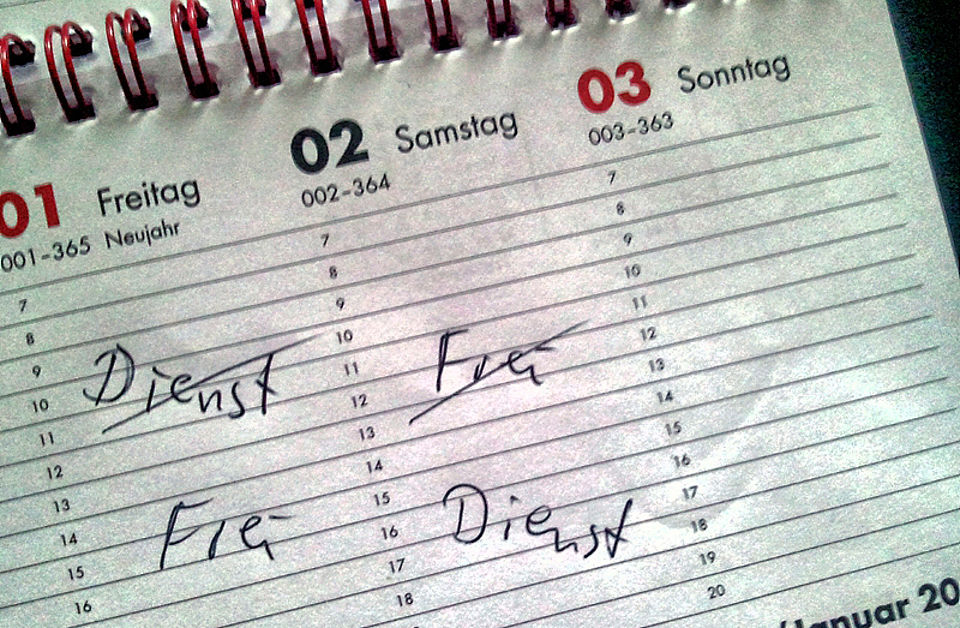 01 Freitag
001-365 Neujahr
7
8
9
10
11
12
13
14
15
16
Dienst
Frei
02 Samstag
002-364
7
8
9
10
11
12
13
14
15
16
17
18
Frei
Dienst
03 Sonntag
003-363
7
8
9
10
11
12
13
14
15
16
17
18
19
20
Januar 20